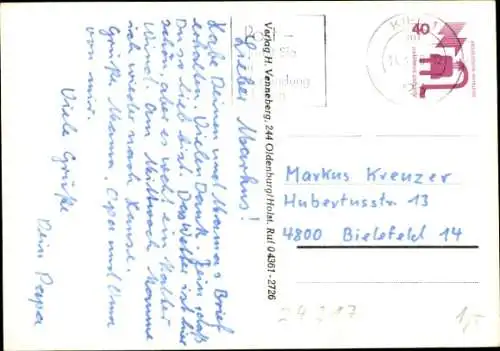 Lieber Markus!
Habe Deinen und Mamas Brief
erhalten. Vielen Dank. Fein, daß
Du so lieb bist. Das Wetter ist hier
schön, aber es weht ein kalter
Wind. Am Mittwoch komme
ich wieder nach Hause.
Grüße Mama, Opa und Oma
von mir.
Viele Grüße
Dein Papa
Verlag H. Venneberg, 244 Oldenburg/Holst. Ruf 04361-2726
KIEL 1
40
Markus Kreuzer
Hubertusstr. 13
4800 Bielefeld 14
24 217
1,-